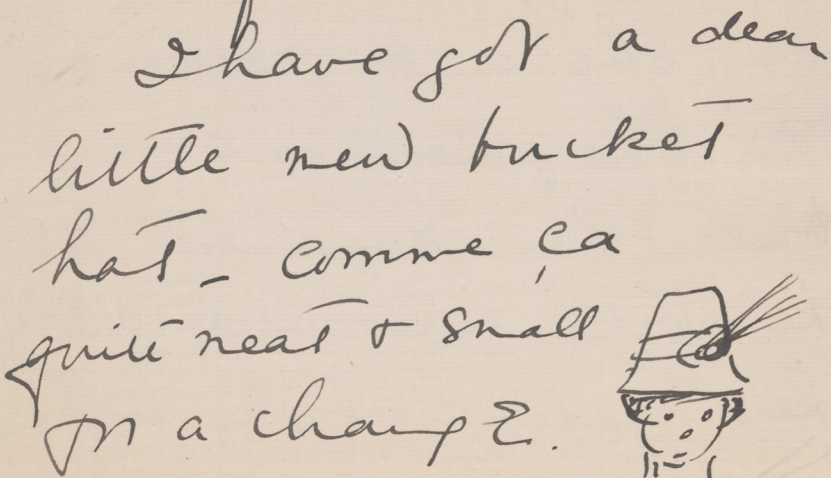 I have got a dear
little new bucket
hat - comme ça
quite neat & small
for a change.